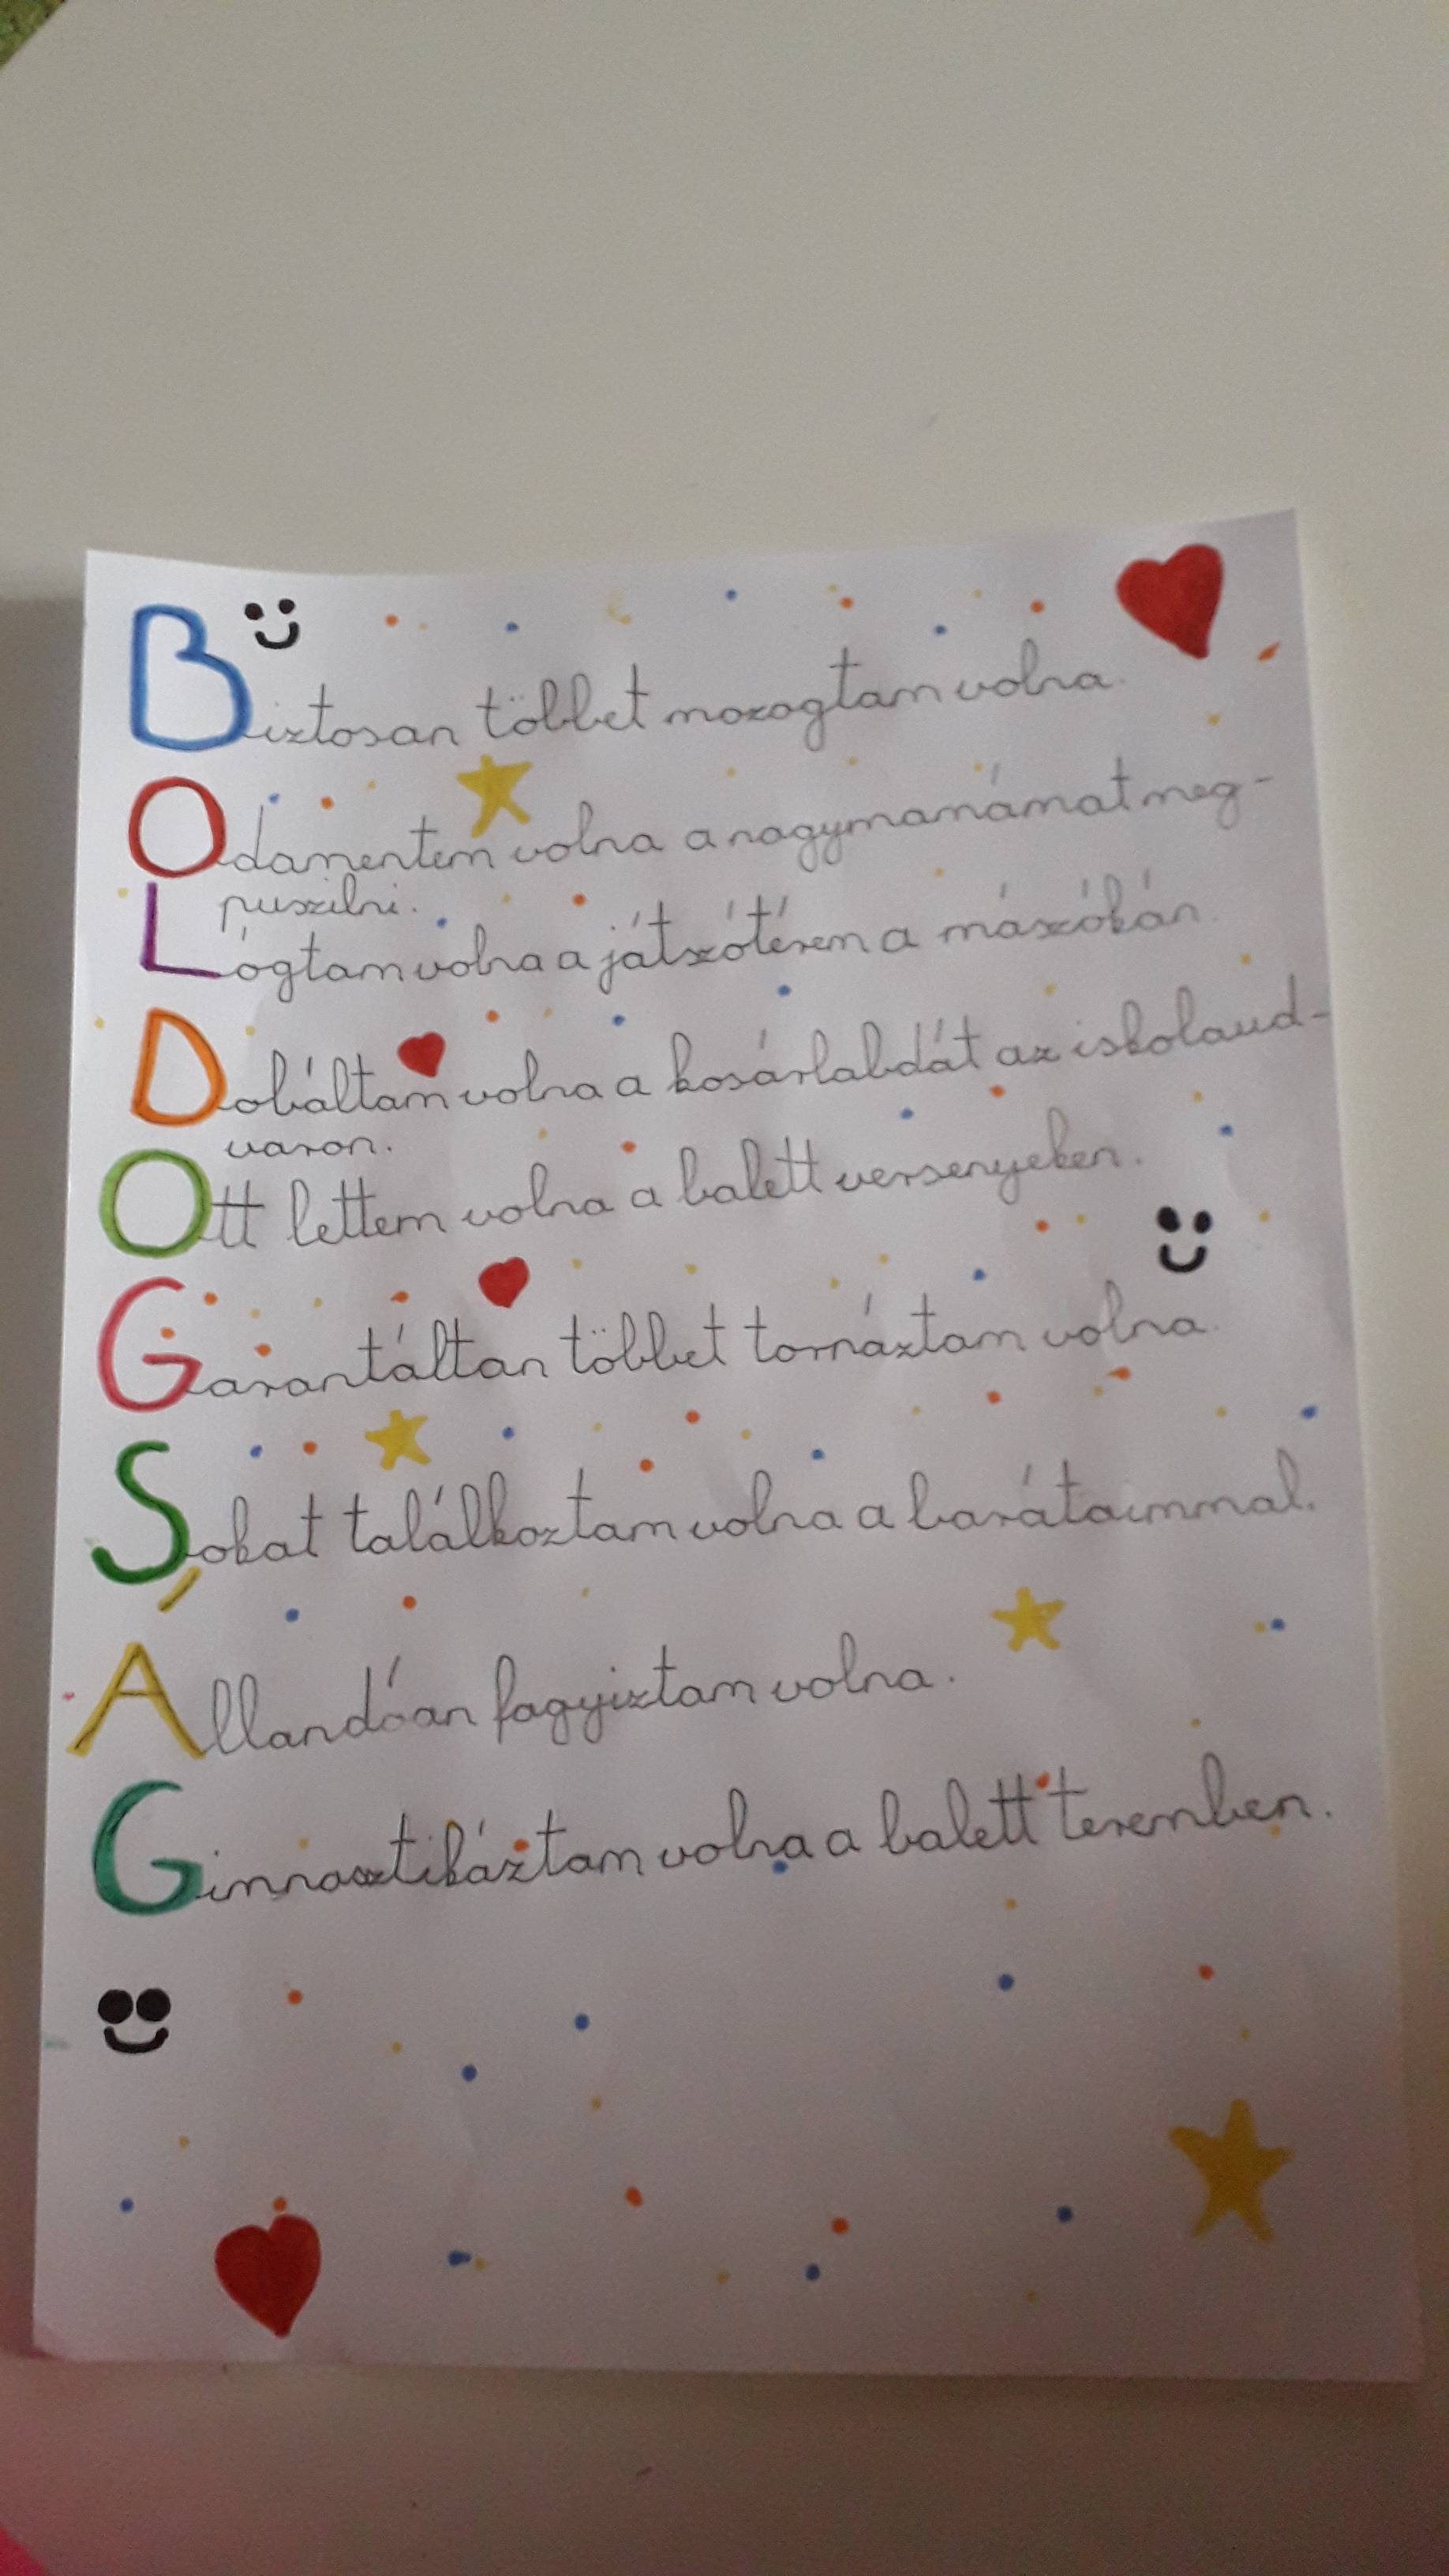 Biztosan többet mozogtam volna.
Odamentem volna a nagymamámat meg-
puszilni.
Lógtam volna a játszótéren a mászókán.
Dobáltam volna a kosárlabdát az iskolaud-
varon.
Ott lettem volna a balett versenyeken.
Garantáltan többet tornáztam volna.
Sokat találkoztam volna a barátaimmal.
Állandóan fagyiztam volna.
Gimnasztikáztam volna a balett teremben.